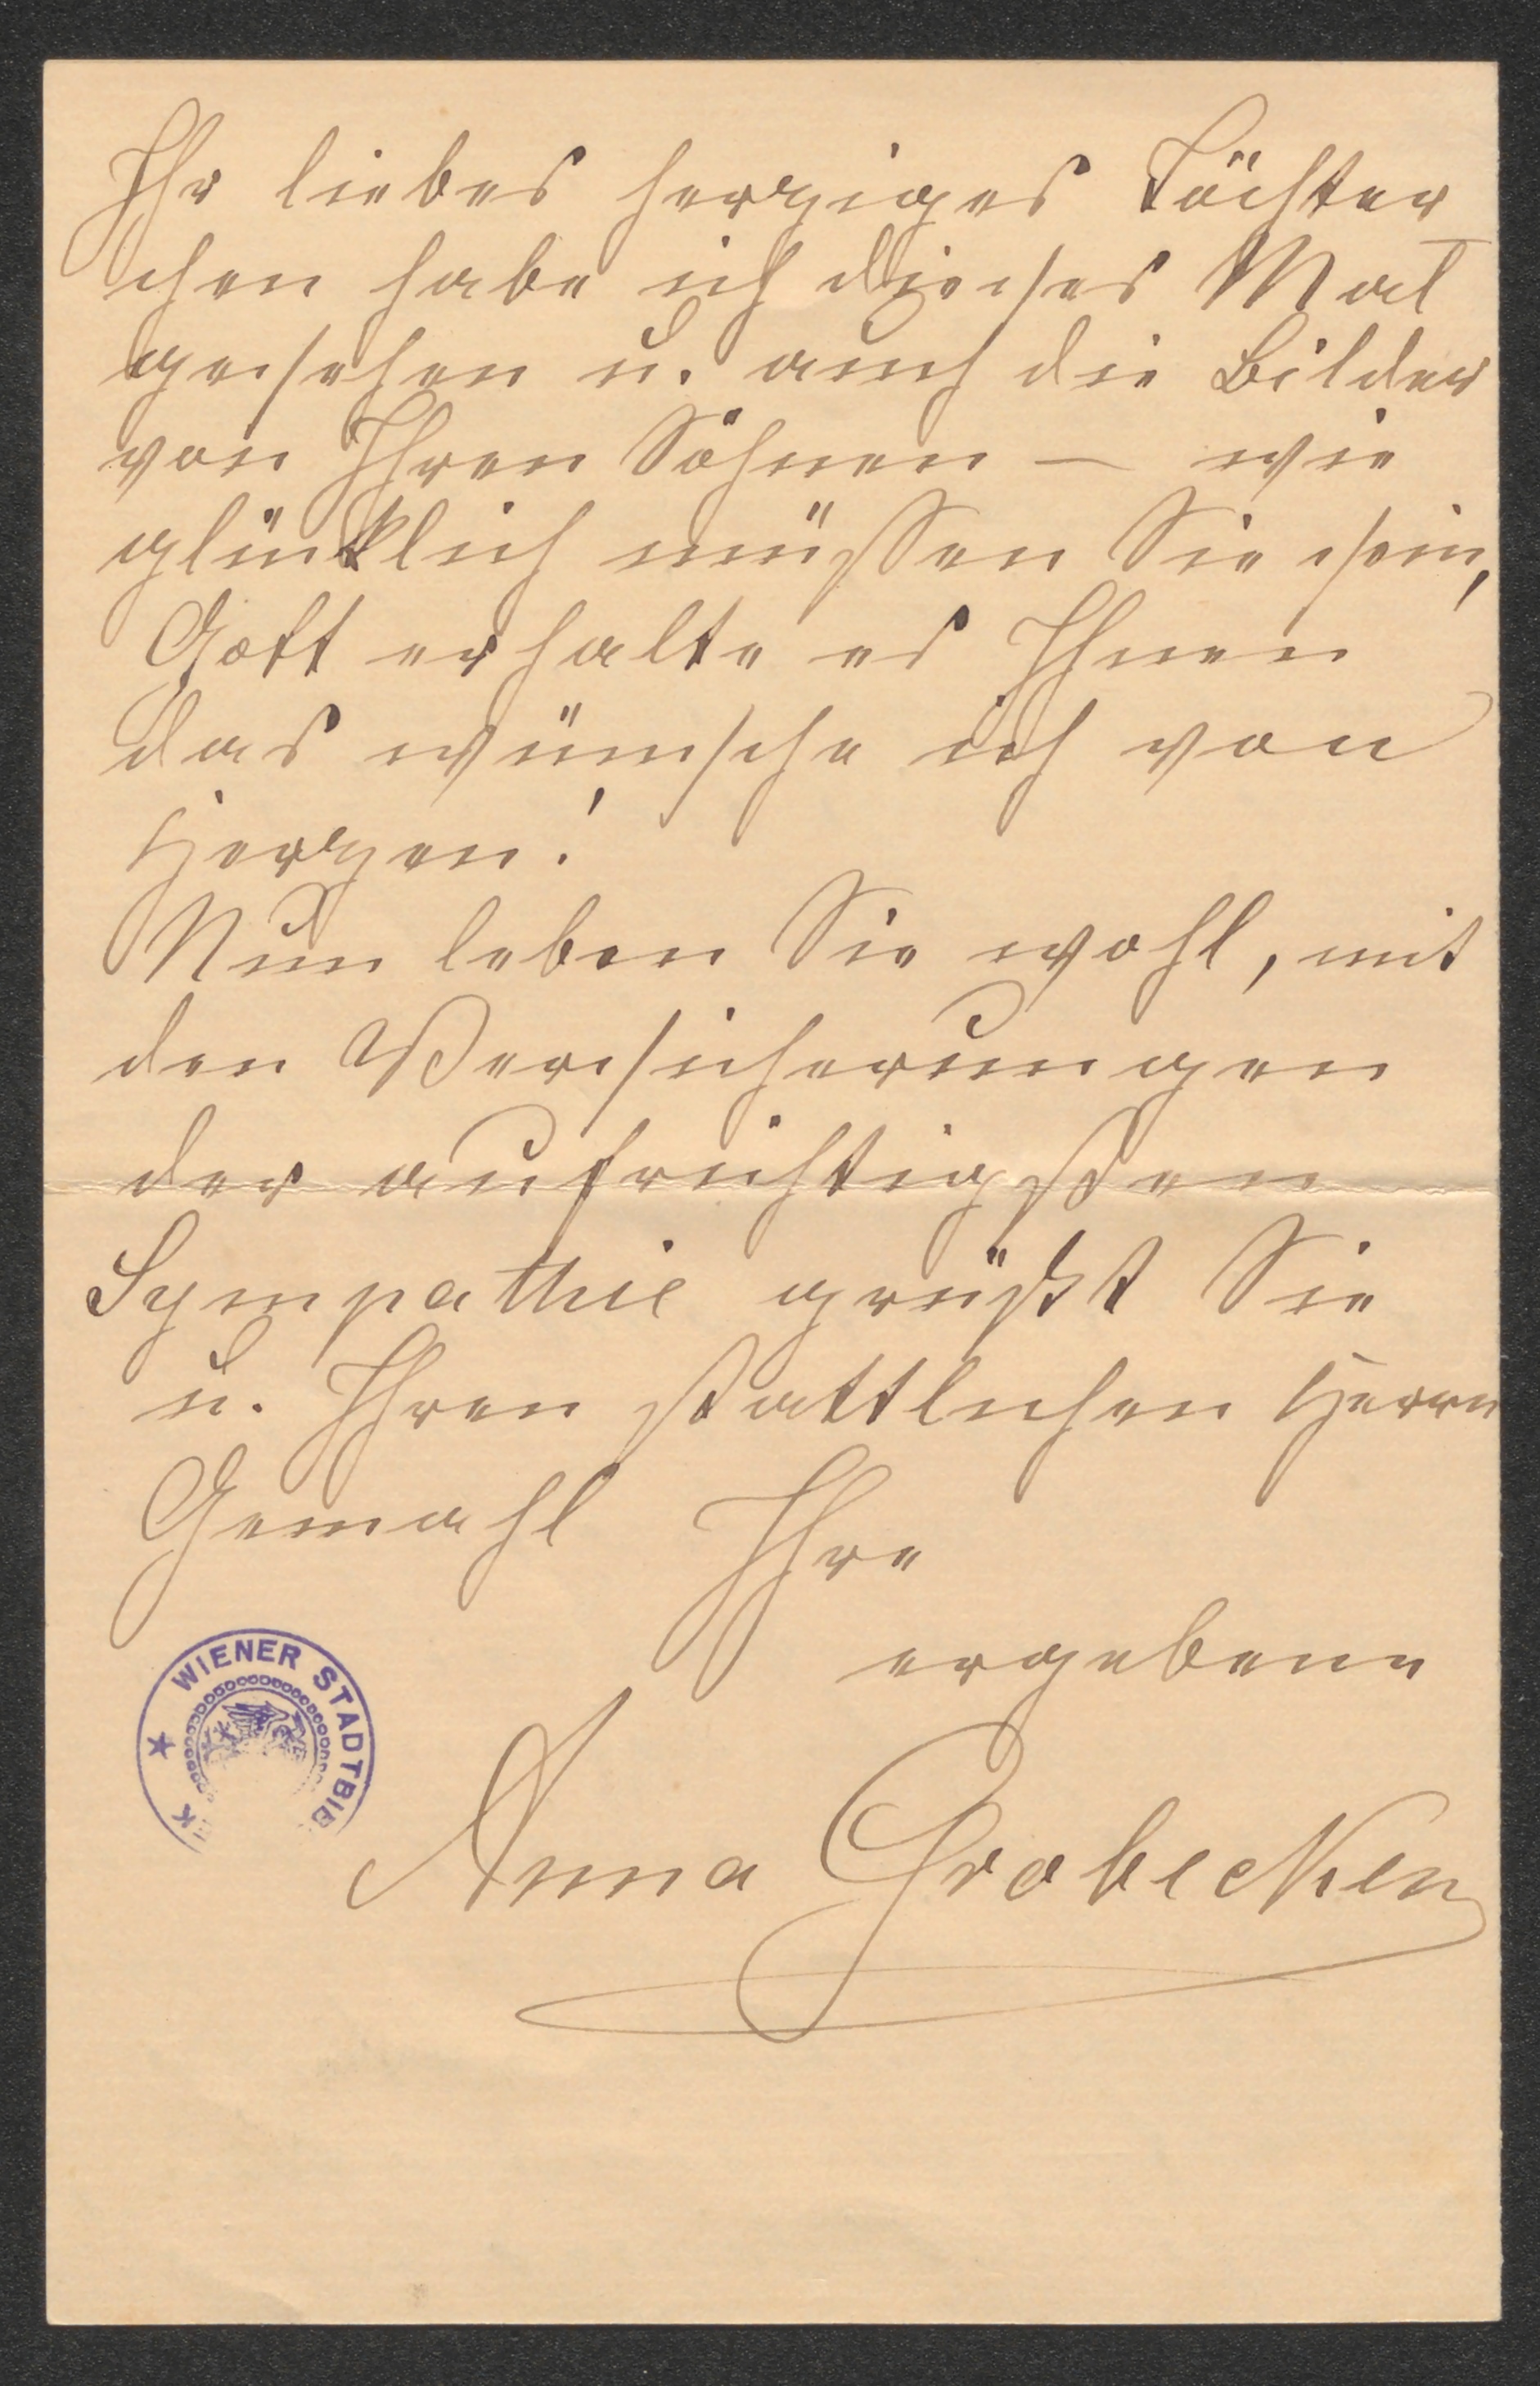 Ihr liebes herziges Töchter
chen habe ich dieses Mal
gesehen u. auch die Bilder
von Ihren Söhnen — wie
glücklich müssen Sie sein,
Gott erhalte es Ihnen
das wünsche ich von
Herzen!
Nun leben Sie wohl, mit
den Versicherungen
der aufrichtigsten
Sympathie grüßt Sie
u. Ihren stattlichen Herrn
Gemahl Ihre
ergebene
WIENER STADTBIB
EK
Anna Grobecker